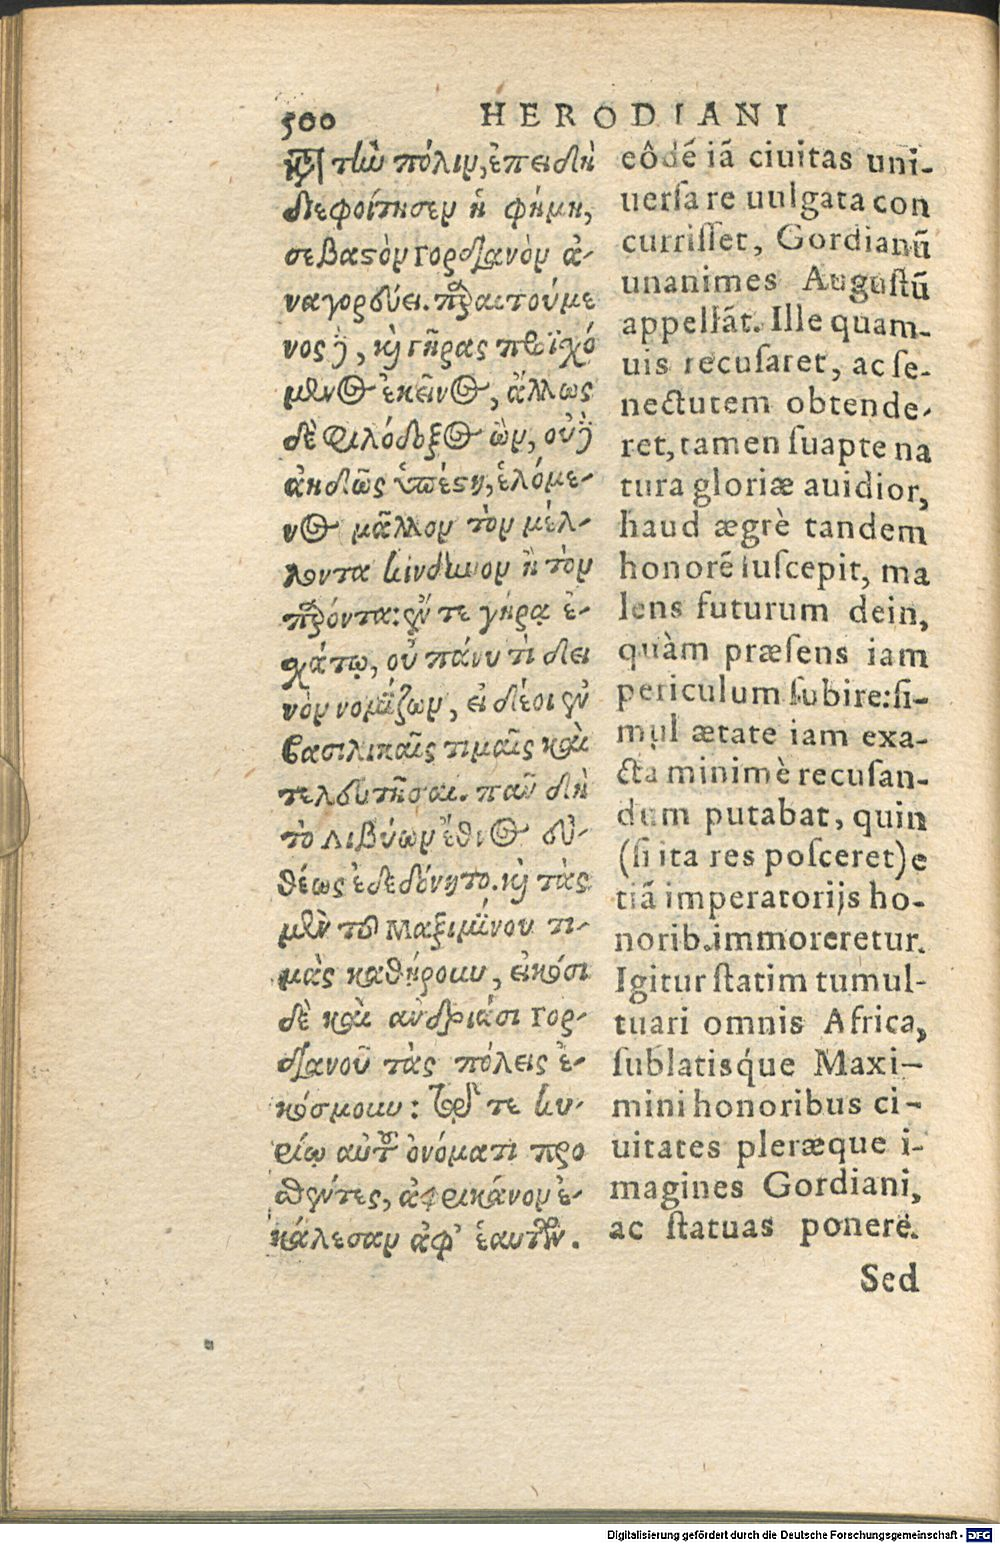 500 HERODIANI
κατὰ τὴν πόλιν, ἐπειδὴ
διεφοίτησεν ἡ φήμη,
σεβαστὸν Γορδιανὸν ἀ-
ναγορεύει. παραιτούμε
νος δὲ, καὶ γῆρας προϊσχό
μενος ἐκεῖνος, ἄλλως
δὲ φιλόδοξος ὢν, οὐδὲ
ἀηδῶς ὑπέστη, ἑλόμε-
νος μᾶλλον τὸν μέλ-
λοντα κίνδυνον ἢ τὸν
παρόντα: ἔν τε γήρᾳ ἐ-
χάτῳ, οὐ πάνυ τὶ δει
νὸν νομίζων, εἰ δέοι ἐν
βασιλικαῖς τιμαῖς καὶ
τελευτῆσαι. πᾶν δὴ
τὸ Λιβύων ἔθνος εὐ-
θέως ἐδεδόνητο. καὶ τὰς
μὲν τοῦ Μαξιμίνου τι-
μὰς καθῄρουν, εἰκόσι
δὲ καὶ ἀνδριάσι Γορ-
διανοῦ τὰς πόλεις ἐ-
κόσμουν: τῷ τε κυ-
ρίῳ αὐτοῦ ὀνόματι προ
σθέντες, ἀφρικάνον ἐ-
κάλεσαν ἀφ' ἑαυτῶν.
eôdẽ iã ciuitas uni-
uersa re uulgata con
currisset, Gordianũ
unanimes Augustũ
appellãt. Ille quam-
uis recusaret, ac se-
nectutem obtende-
ret, tamen suapte na
tura gloriæ auidior,
haud ægrè tandem
honorẽ suscepit, ma
lens futurum dein,
quàm præsens iam
periculum subire: si-
mul ætate iam exa-
cta minimè recusan-
dum putabat, quin
(si ita res posceret) e
tiã imperatorijs ho-
norib. immoreretur.
Igitur statim tumul-
tuari omnis Africa,
sublatisq́ue Maxi-
mini honoribus ci-
uitates pleræque i-
magines Gordiani,
ac statuas ponere.
Sed
Digitalisierung gefördert durch die Deutsche Forschungsgemeinschaft - DFG